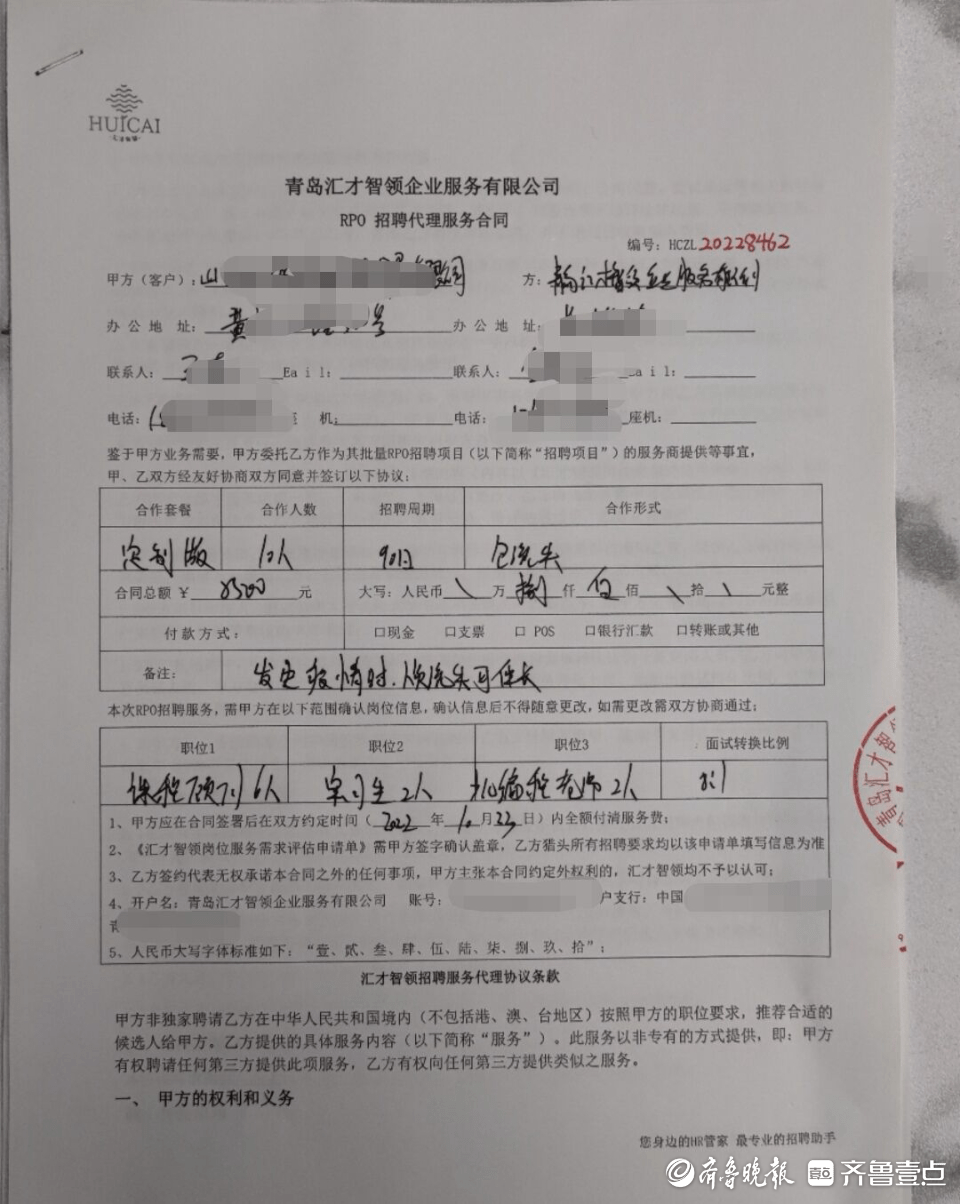 HUICAI
汇才智领
青岛汇才智领企业服务有限公司
RPO 招聘代理服务合同
编号：HCZL 20228462
甲方（客户）：山
方：
办公地 址：黄 号 办公地 址：
联系人： Ea il： 联系人： Ea il：
电话： 机： 电话： 座机：
鉴于甲方业务需要，甲方委托乙方作为其批量RPO招聘项目（以下简称“招聘项目”）的服务商提供等事宜，
甲、乙双方经友好协商双方同意并签订以下协议：
合作套餐 合作人数 招聘周期 合作形式
定制版 10人 90日 包流失
合同总额 ￥ 8500 元 大写：人民币 \ 万 捌 仟 伍 佰 \ 拾 \ 元整
付款方式： 口现金 口支票 口 POS 口银行汇款 口转账或其他
备注： 发生疫情时，顺流失可延长
本次RPO招聘服务，需甲方在以下范围确认岗位信息，确认信息后不得随意更改，如需更改需双方协商通过：
职位1 职位2 职位3 面试转换比例
课程顾问 6人 实习生 2人 编程老师 2人 3:1
1、甲方应在合同签署后在双方约定时间（ 2022 年 10 月 23 日）内全额付清服务费；
2、《汇才智领岗位服务需求评估申请单》需甲方签字确认盖章，乙方猎头所有招聘要求均以该申请单填写信息为准
3、乙方签约代表无权承诺本合同之外的任何事项，甲方主张本合同约定外权利的，汇才智领均不予以认可；
4、开户名：青岛汇才智领企业服务有限公司 账号： 户支行：中国
5、人民币大写字体标准如下：“壹、贰、叁、肆、伍、陆、柒、捌、玖、拾”；
汇才智领招聘服务代理协议条款
甲方非独家聘请乙方在中华人民共和国境内（不包括港、澳、台地区）按照甲方的职位要求，推荐合适的
候选人给甲方。乙方提供的具体服务内容（以下简称“服务”）。此服务以非专有的方式提供，即：甲方
有权聘请任何第三方提供此项服务，乙方有权向任何第三方提供类似之服务。
一、 甲方的权利和义务
青岛汇才智领
您身边的HR管家 最专业的招聘助手
齐鲁晚报 齐鲁壹点